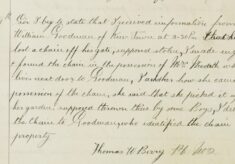 Sir I beg to state that I received information from
William Goodman of New Town at 2.30 pm that he
lost a chain off his gate, supposed stolen, I made inq
& found the chain in the possession of Mrs
lives next door to Goodman, I ask her how she came
possession of the chain, she said that she picked it up
her garden supposed thrown there by some Boys, I
the chain to Goodman, who identified the chain
property
Thomas W Berry P.C.